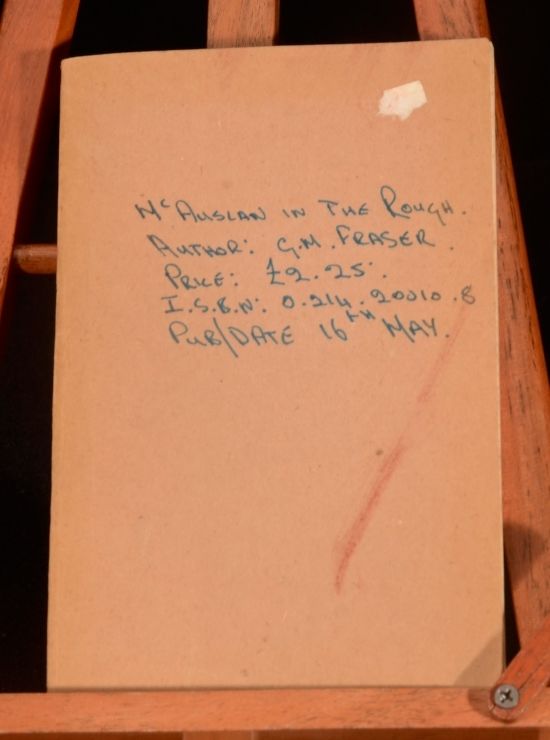 Mc AUSLAN IN THE ROUGH.
AUTHOR: G.M. FRASER.
PRICE: £2.25.
I.S.B.N: 0.214.20010.8
PUB/DATE 16TH MAY.